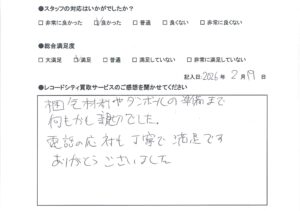 ●スタッフの対応はいかがでしたか?
□非常に良かった ☑良かった □普通 □良くない □非常に良くない
●総合満足度
□大満足 ☑満足 □普通 □満足していない □非常に満足していない
記入日:2026年 2月19日
●レコードシティ買取サービスのご感想を聞かせてください
梱包材料やダンボールの準備まで
何もかも親切でした。
電話の応対も丁寧で満足です
ありがとうございました